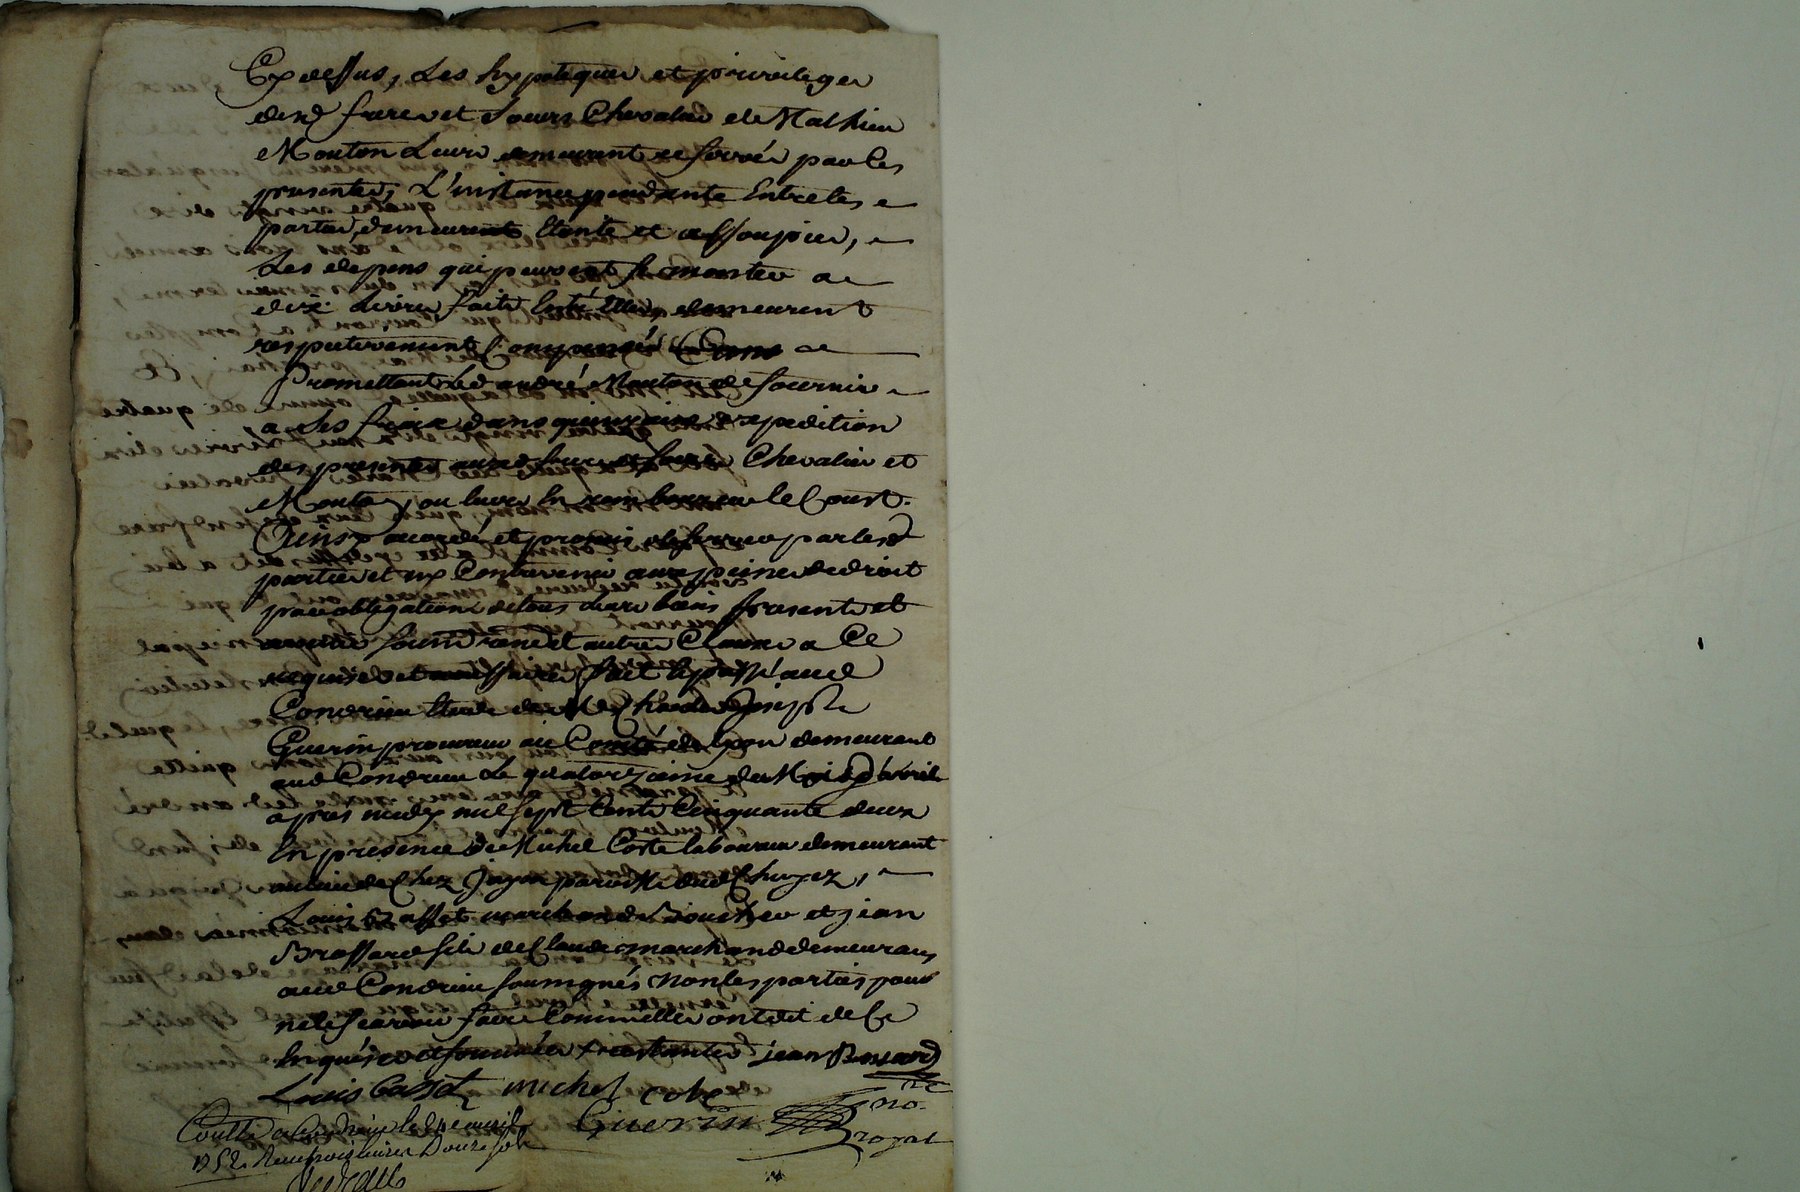 Cy dessus, Les hypoteques et privileges
desd freres et soeurs Chevalier de Mathieu
Mouton Leurs demeurant reservés par les
presentes, L'instance pendante Entre les
parties demeurant Eteinte et assoupie,
Les depens qui peuvent se monter a
dix Livres faits Entre Elles demeurent
respectivement Compensés
Promettant Led andré Mouton de fournir
a ses fraix dans quinzaine expedition
des presentes auxd freres et soeurs Chevalier et
Mouton, ou leurs En rembourser le Cout.
Ainsy accordé et promis observer par lesd
parties et ny Contrevenir aux peines de droit
par obligation de tous leurs biens presents et
soumissions et autres Clauses a Ce
requises et necessaires fait et passé aud
Condrieu Etude de Me
Guerin procureur aux Cours de Lyon demeurant
aud Condrieu Le quatorzieme du Mois d'avril
apres midy mil sept Cents Cinquante deux
En presence de Michel Coste laboureur demeurant
au lieu de Chez paroisse dud Chuyez,
Louis Basset marchand Boucher et jean
Brossard fils de Claude marchand demeurans
aud Condrieu soussignés non les parties pour
ne le scavoir faire Comme Elles ont dit de Ce
Enquises et sommées jean Bossard
Louis Basset michel coste
Guerin no. re
royal
Conttrolé a Condrieu le 24 avril
1752 Receu trois livres Douze sols